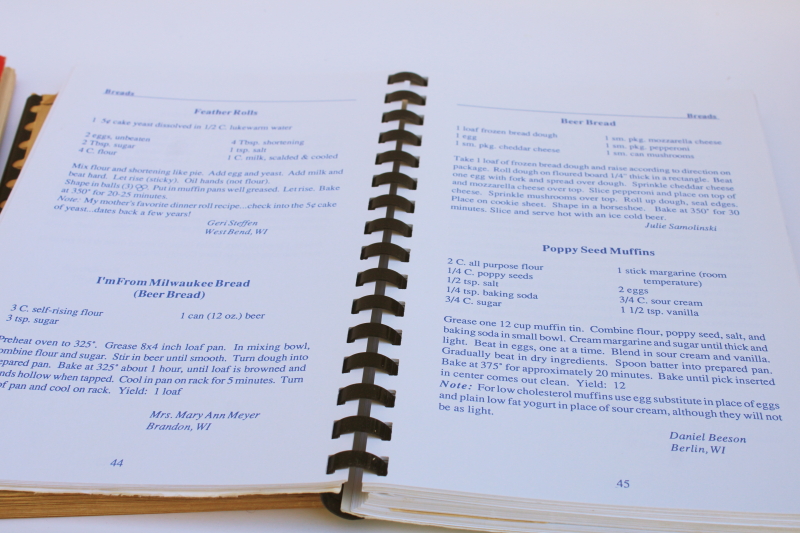 Breads
Feather Rolls
1 5¢ cake yeast dissolved in 1/2 C. lukewarm water
2 eggs, unbeaten
2 Tbsp. sugar
4 C. flour
4 Tbsp. shortening
1 tsp. salt
1 C. milk, scalded & cooled
Mix flour and shortening like pie. Add egg and yeast. Add milk and
beat hard. Let rise (sticky). Oil hands (not flour).
Shape in balls (3). Put in muffin pans well greased. Let rise. Bake
at 350° for 20-25 minutes.
Note: My mother's favorite dinner roll recipe...check into the 5¢ cake
of yeast...dates back a few years!
Geri Steffen
West Bend, WI
I'm From Milwaukee Bread
(Beer Bread)
3 C. self-rising flour
3 tsp. sugar
1 can (12 oz.) beer
Preheat oven to 325°. Grease 8x4 inch loaf pan. In mixing bowl,
ombine flour and sugar. Stir in beer until smooth. Turn dough into
epared pan. Bake at 325° about 1 hour, until loaf is browned and
nds hollow when tapped. Cool in pan on rack for 5 minutes. Turn
of pan and cool on rack. Yield: 1 loaf
Mrs. Mary Ann Meyer
Brandon, WI
44
Breads
Beer Bread
1 loaf frozen bread dough
1 egg
1 sm. pkg. cheddar cheese
1 sm. pkg. mozzarella cheese
1 sm. pkg. pepperoni
1 sm. can mushrooms
Take 1 loaf of frozen bread dough and raise according to direction on
package. Roll dough on floured board 1/4" thick is a rectangle. Beat
one egg with fork and spread over dough. Sprinkle cheddar cheese
and mozzarella cheese over top. Slice pepperoni and place on top of
cheese. Sprinkle mushrooms over top. Roll up dough, seal edges.
Place on cookie sheet. Shape in a horseshoe. Bake at 350° for 30
minutes. Slice and serve hot with an ice cold beer.
Julie Samolinski
Poppy Seed Muffins
2 C. all purpose flour
1/4 C. poppy seeds
1/2 tsp. salt
1/4 tsp. baking soda
3/4 C. sugar
1 stick margarine (room
temperature)
2 eggs
3/4 C. sour cream
1 1/2 tsp. vanilla
Grease one 12 cup muffin tin. Combine flour, poppy seed, salt, and
baking soda in small bowl. Cream margarine and sugar until thick and
light. Beat in eggs, one at a time. Blend in sour cream and vanilla.
Gradually beat in dry ingredients. Spoon batter into prepared pan.
Bake at 375° for approximately 20 minutes. Bake until pick inserted
in center comes out clean. Yield: 12
Note: For low cholesterol muffins use egg substitute in place of eggs
and plain low fat yogurt in place of sour cream, although they will not
be as light.
Daniel Beeson
Berlin, WI
45